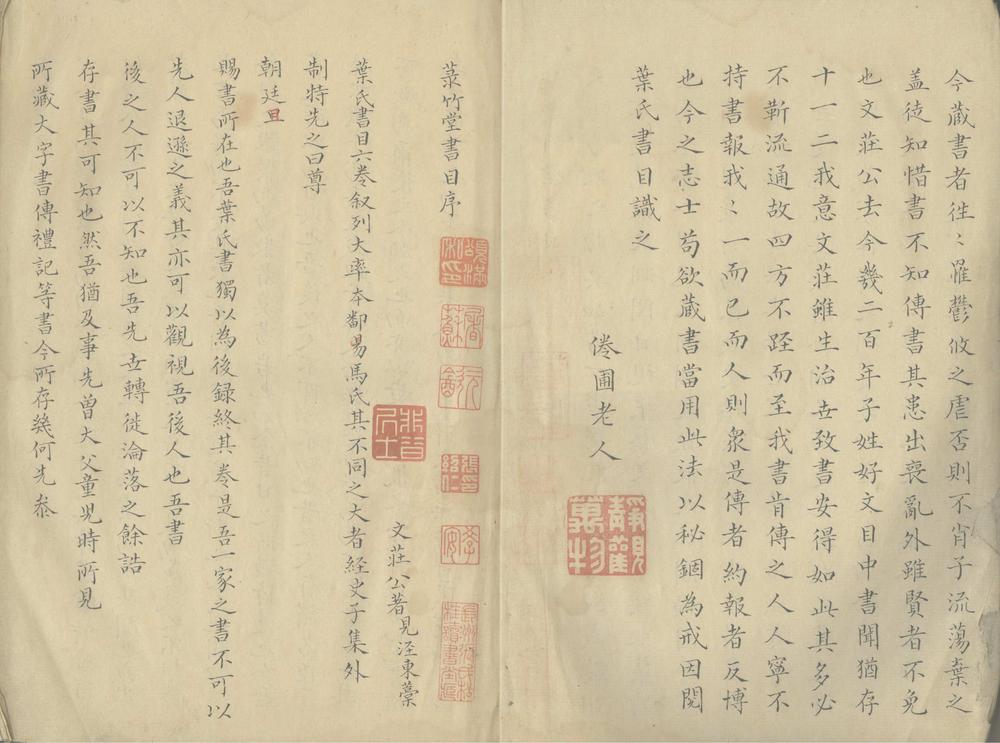 今藏書者徃〻罹鬱攸之虐否則不肖子流蕩棄之
盖徒知惜書不知傳書其患出喪亂外雖賢者不免
也文莊公去今幾二百年子姓好文目中書聞猶存
十一二我意文莊雖生治世致書安得如此其多必
不靳流通故四方不踁而至我書肯傳之人人寧不
持書報我〻一而已而人則衆是傳者約報者反博
也今之志士苟欲蔵書當用此法以秘錮為戒因閱
葉氏書目識之
倦圃老人
靜觀萬物
菉竹堂書目序
文莊公著見涇東藁
葉氏書目六卷叙列大率本鄱昜馬氏其不同之大者経史子集外
制特先之曰尊
朝廷且
賜書所在也吾葉氏書獨以為後録終其卷是吾一家之書不可以
先人退遜之義其亦可以觀視吾後人也吾書
後之人不可以不知也吾先世轉徙淪落之餘誥
存書其可知也然吾猶及事先曾大父童児時所見
所藏大字書傳禮記等書今所存幾何先叅